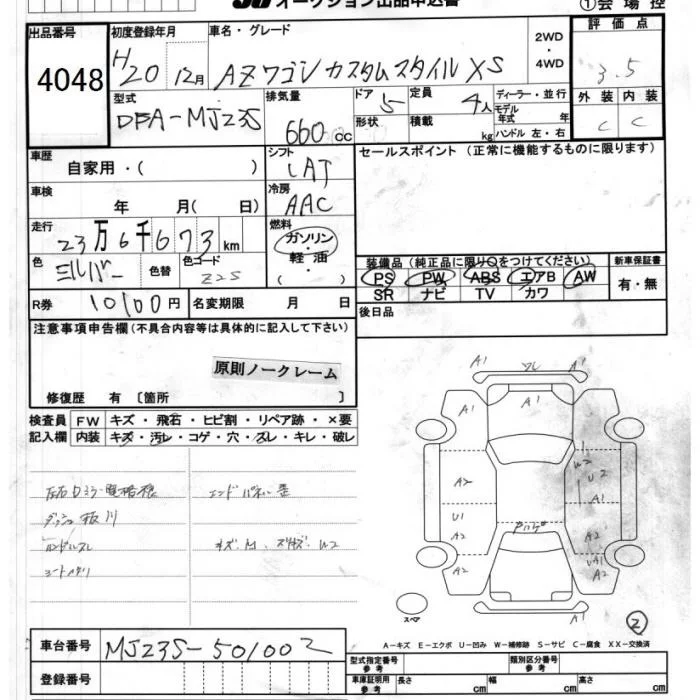 オークション出品申込書 ①会場控
出品番号 4048
初度登録年月 H20 12月
車名・グレード AZワゴン カスタムスタイル XS
2WD・4WD
評価点 3.5
外装 C 内装 C
型式 DBA-MJ23S
排気量 660cc
ドア 5 定員 4人
形状 積載 kg
ディーラー・並行
モデル年式 年
ハンドル 左・右
車歴 自家用・( )
シフト LAT
セールスポイント (正常に機能するものに限ります)
車検 年 月( 日)
冷房 AAC
走行 23万6千673km
燃料 ガソリン・軽油・( )
色 シルバー 色替 色コード Z2S
装備品(純正品に限り○をつけてください) 新車保証書
PS PW ABS エアB AW 有・無
SR ナビ TV カワ
R券 10100円 名変期限 月 日
後日品
注意事項申告欄(不具合内容等は具体的に記入して下さい)
原則ノークレーム
修復歴 有 〔箇所 〕
検査員記入欄 FW キズ・飛石・ヒビ割・リペア跡・×要
内装 キズ・汚レ・コゲ・穴・スレ・キレ・破レ
エンドパネル
ハンドルスレ
A1 A1
A1 A1
A2 W2 U2
A1
U1
A2 A2
A2 A2
A1 A1
スペア
②
A-キズ E-エクボ U-凹み W-補修跡 S-サビ C-腐食 XX-交換済
車台番号 MJ23S-501002
登録番号
型式指定番号 参考 類別区分番号 参考
車庫証明用 参考 長さ cm 幅 cm 高さ cm